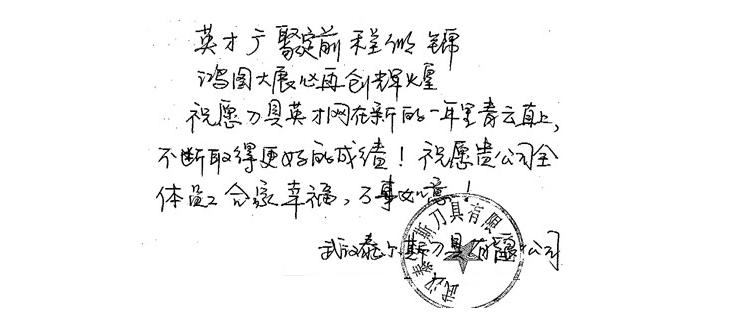 英才广聚定前程似锦
鸿图大展必再创辉煌
祝愿刀具英才网在新的一年里青云直上,
不断取得更好的成绩！祝愿贵公司全
体员工合家幸福,万事如意！
武汉泰尔斯刀具有限公司
武汉泰尔斯刀具有限公司